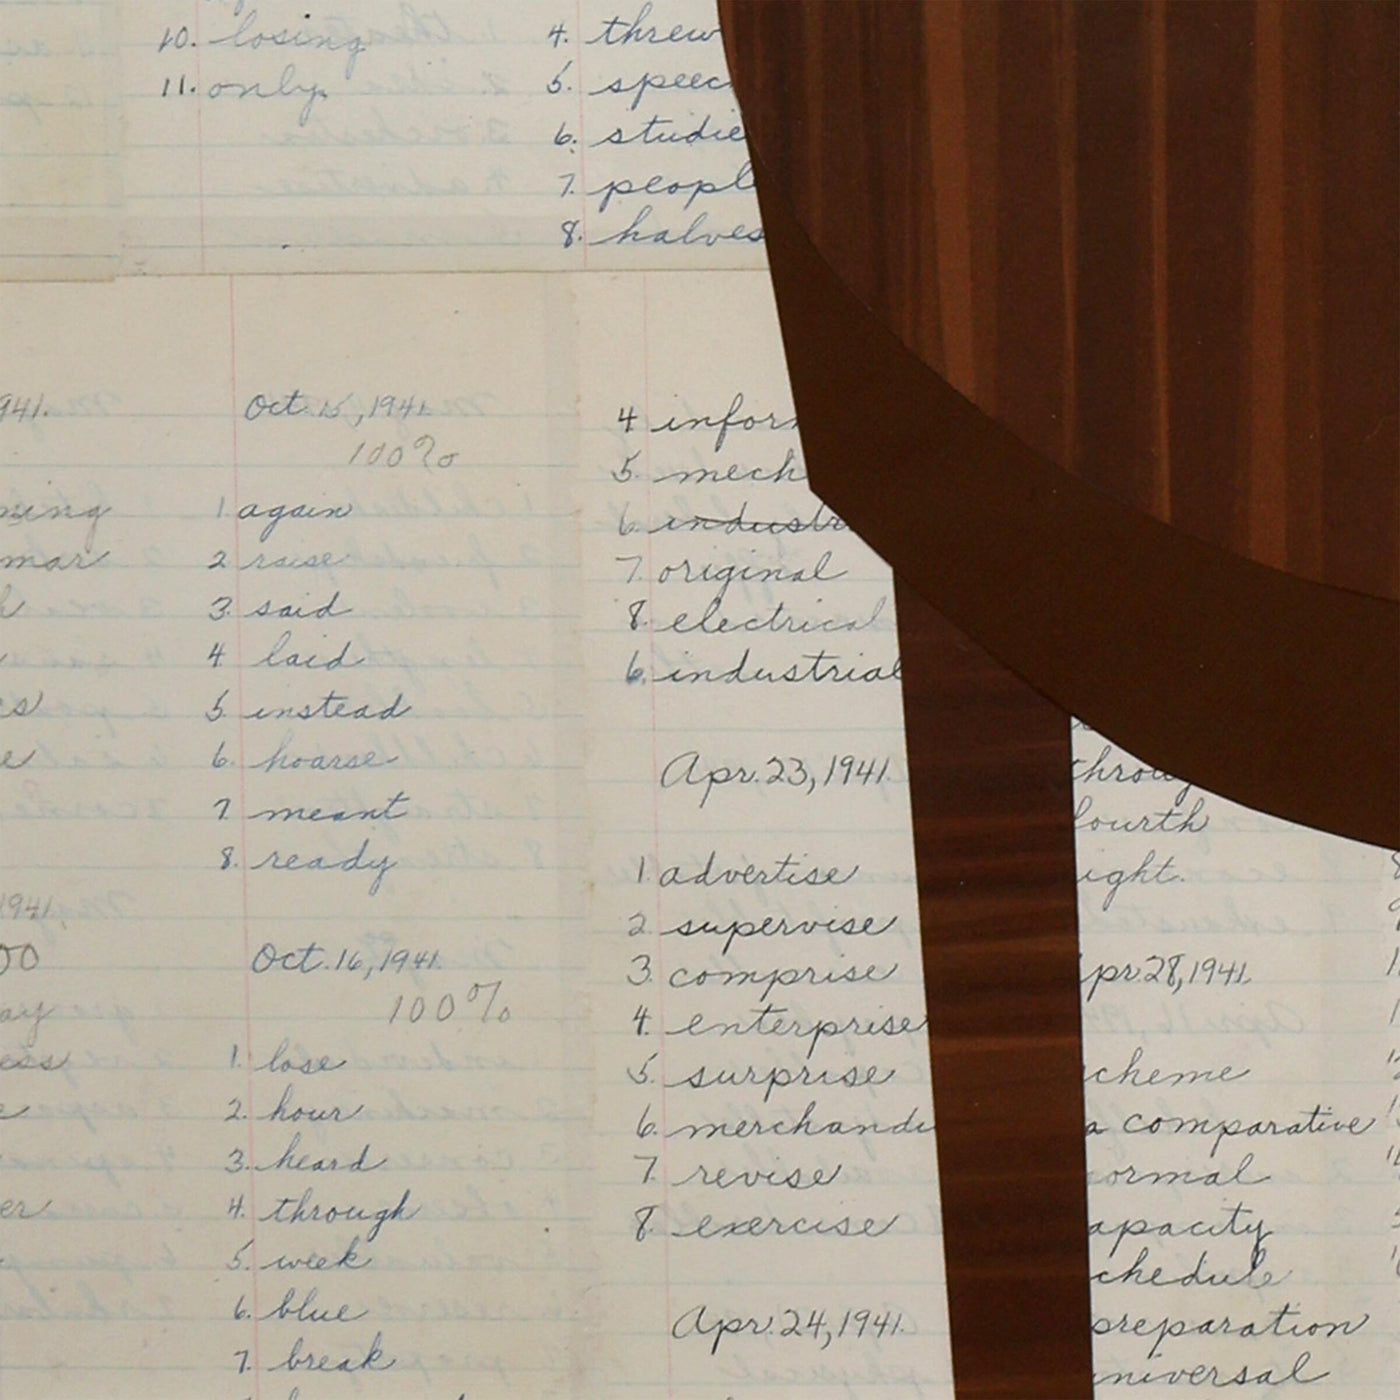 10. losing
11. only
4. threw
5. speec
6. studie
7. people
8. halves
941.
ning
mar
es
e
1941.
00
ay
ess
e
er
Oct. 15, 1941.
100%
1 again
2 raise
3. said
4 laid
5 instead
6. hoarse
7. meant
8. ready
Oct. 16, 1941.
100%
1. lose
2. hour
3. heard
4. through
5. week
6. blue
7. break
4 inform
5. mech
6. industri
7. original
8. electrical
6. industrial
Apr. 23, 1941.
1. advertise
2 supervise
3. comprise
4. enterprise
5. surprise
6. merchandi
7. revise
8. exercise
Apr. 24, 1941.
throug
fourth
ight.
pr. 28, 1941.
cheme
a comparative
ormal
apacity
chedule
preparation
universal